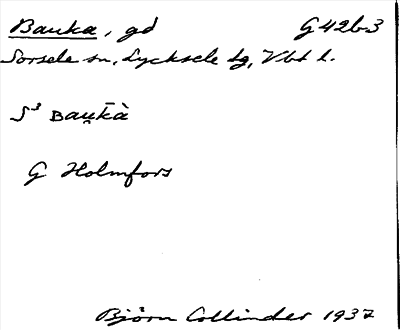 Bauka, gd G42b3
Sorsele sn, Lycksele lg, Vbt l.
S³ ʙᴀṷk̄à
G Holmfors
Björn Collinder 1937